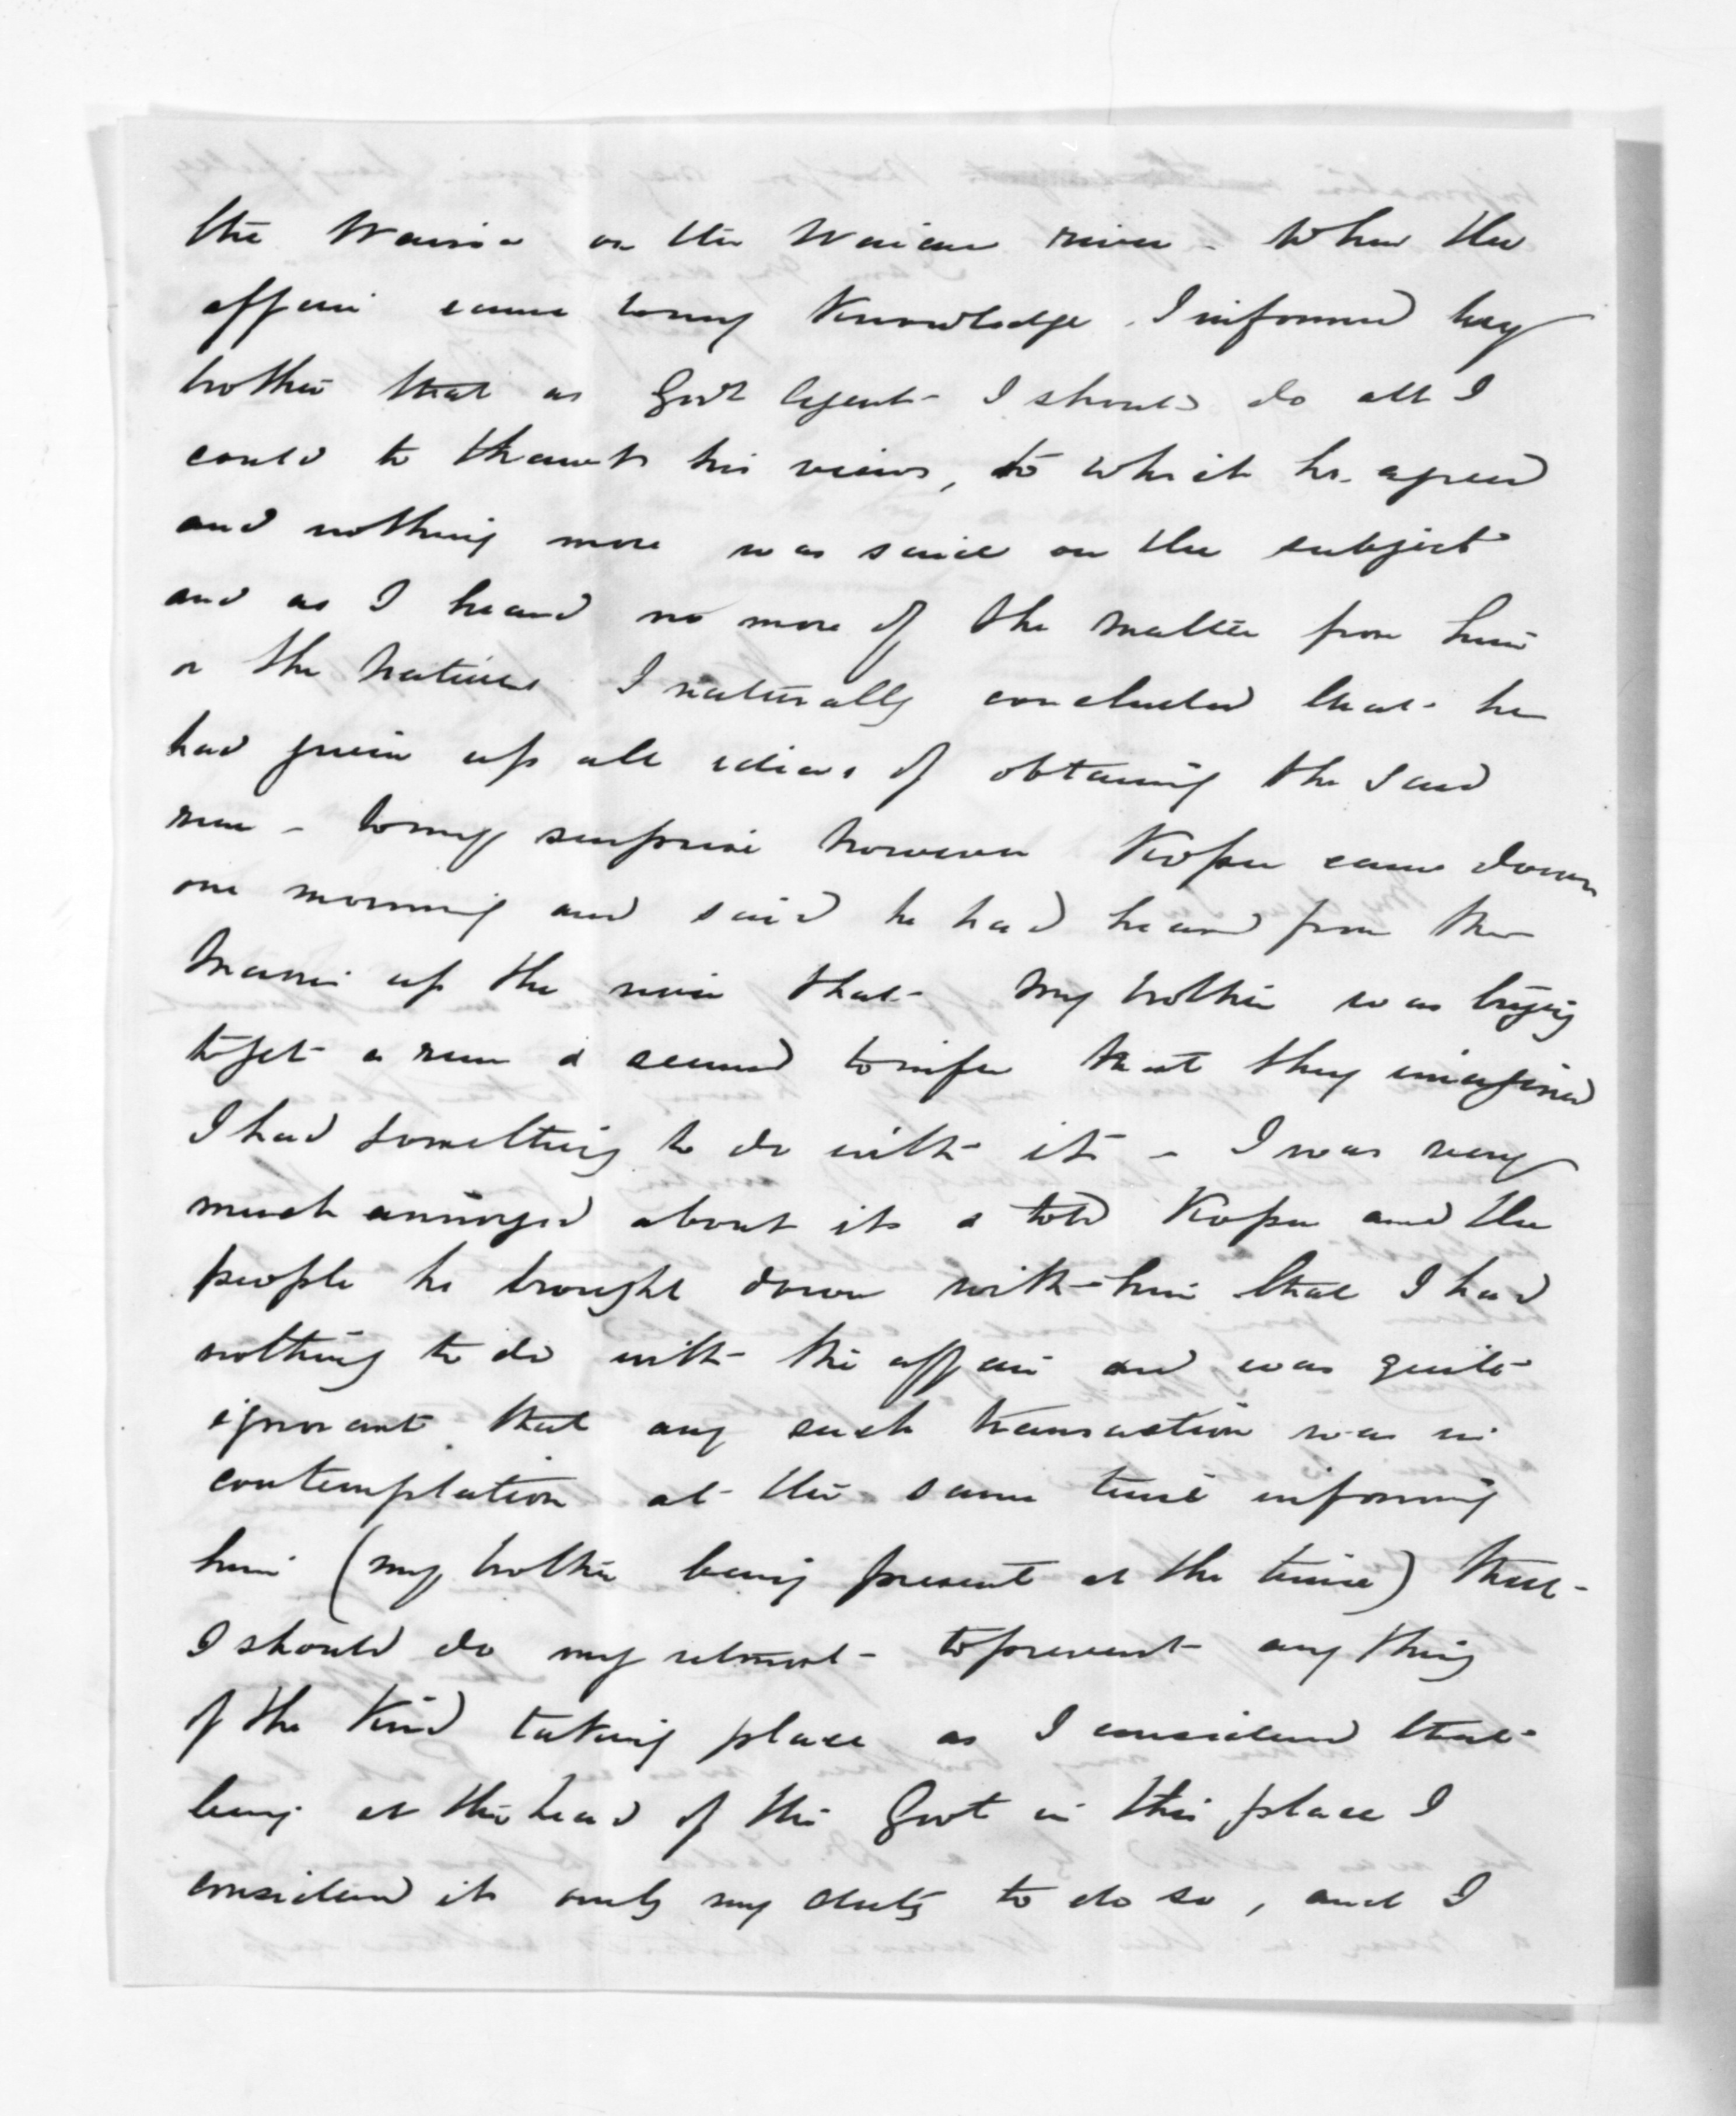 the Wairoa on the Waiau river - When the
affair came to my knowledge I informed my
brother that as Govt Agent I should do all I
could to thwart his views, to which he agreed
and nothing more was said on the subject
and as I heard no more of the matter from him
or the Natives I naturally concluded that he
had given up all ideas of obtaining the said
run - to my surprise however Kopu came down
one morning and said he had heard from the
Maoris up the river that my brother was trying
to get a run & seemed to infer that they imagined
I had something to do with it - I was very
much annoyed about it & told Kopu and the
people he brought down with him that I had
nothing to do with the affair and was quite
ignorant that any such transaction was in
contemplation at the same time informing
him (my brother being present at the time) that
I should do my utmost to prevent any thing
of the kind taking place as I considered that
being at the head of the Govt in this place I
considered it only my duty to do so, and I